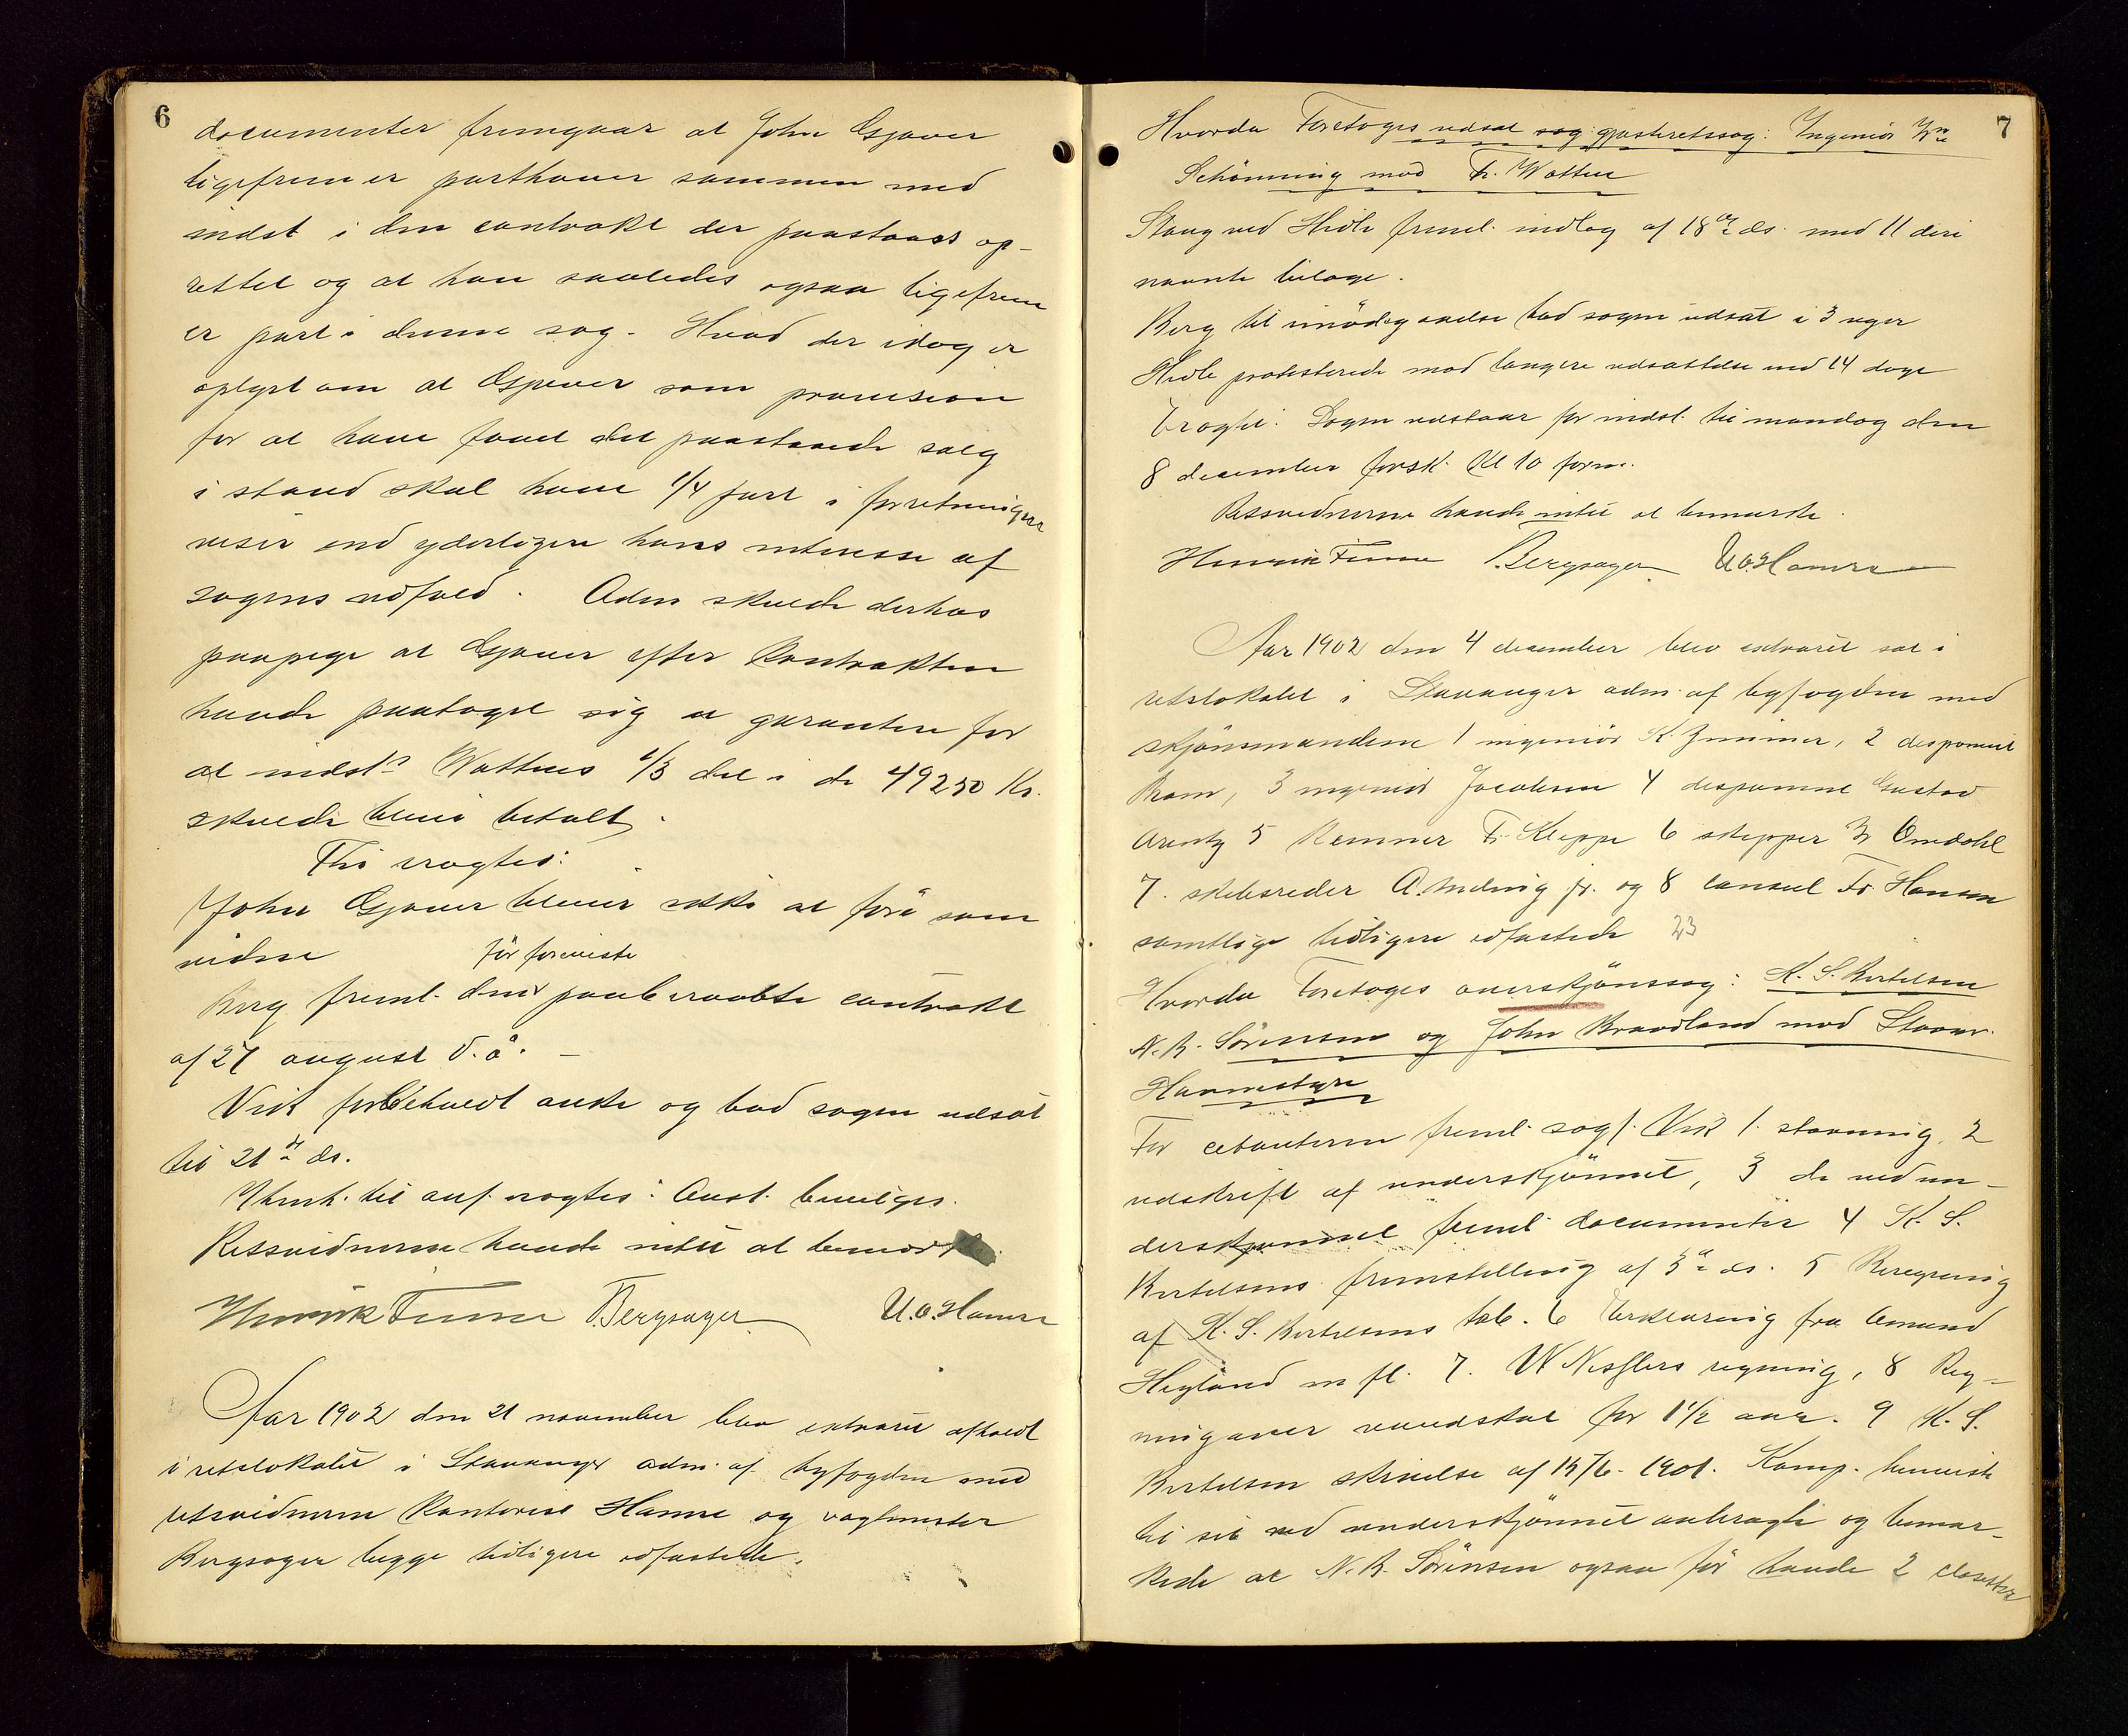 6
documenter fremgaar at John Gjøver
ligefrem er parthaver sammen med
indst i den contrakt der paastaaes op-
rettet og at han saaledes ogsaa ligefrem
er part i denne sag. Hvad der idag er
oplyst om at Gjøver som provision
for at have faaet det paastaaede salg
i stand skal have 1/4 part i forretningen
viser end yderligere hans interesse af
sagens udfald. Adm skulde derhos
paapege at Gjøver efter Kontrakten
havde paataget sig at garantere for
at indst. Wattnes 1/3 del i de 49250 Kr.
skulde blive betalt.
Thi eragtes:
John Gjøver bliver ikke at føre som
vidne
før foreviste
Berg freml. den paaberaabte contrakt
af 27 august d. å. –
Vik forbeholdt anke og bad sagen udsat
til 21 de ds.
Ihenh. til anf. eragtes: Anst. bevilges.
Retsvidnerne havde intet at bemærke.
Henrik Finne T. Bergsager U. O. Hamre
Aar 1902 den 21 november blev extraret afholdt
i retslokalet i Stavanger adm. af byfogden med
retsvidnerne Kontorist Hamre og vagtmester
Bergsager begge tidligere edfæstede.
7
Hvorda Foretoges udsat sag gjesteretssag: Ingeniør
Schönning mod Th. Watne
Stang ved Hidle freml. indlæg af 18 de ds. med 11 deri
nævnte bilage.
Berg til imødegaaelse bad sagen udsat i 3 uger
Hidle protesterede mod længere udsættelse end 14 dage
Eragtet: Sagen udstaar for indst. til mandag den
8 december førsk. Kl 10 form.
Retsvidnerne havde intet at bemærke.
Henrik Finne T. Bergsager U. O. Hamre
Aar 1902 den 4 december blev extraret sat i
retslokalet i Stavanger adm. af byfogden med
skjønsmændene 1 ingeniør K. Zimmer, 2 disponent
Kram, 3 ingeniør Jacobsen 4 disponent Gustav
Arentz 5 Kemner Fr. Kleppe 6 skipper Omdahl
7. skibsreder A. Helvig jr. og 8 consul Fr. Hansen
samtlige tidligere edfæstede 23
Hvorda Foretoges overskjønssag: K. S. Bertelsen
N. B. Sørensen og John Braadland mod Stavan.
Havnestyre
For citanterne freml. sagf. Vik 1. stævning, 2
udskrift af underskjønnet, 3 de ved un-
derskjønnet freml documenter 4 K. S.
Bertelsens fremstilling af 3 de ds. 5 Beregning
af K. S. Bertelsens tab. 6 Erklæring fra Omund
Hegland m fl. 7. W Nesflers regning, 8 Reg-
ning over vandskat for 1 1/2 aar. 9 K. S.
Bertelsen skrivelse af 15/6-1901. Komp. henviste
til sit ved underskjønnet anbragte og bemær-
kede at N. B. Sørensen ogsaa før havde 2 closetter